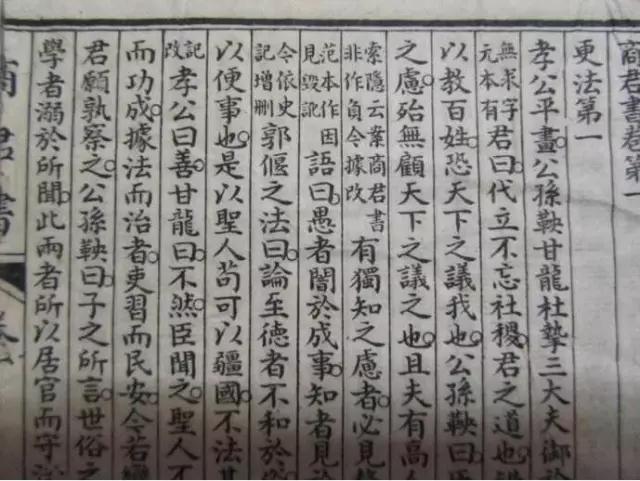 商君書卷第一
更法第一
孝公平畫。公孫鞅甘龍杜摯三大夫御於
無求字
元本有
君曰。代立不忘社稷。君之道也
以教百姓。恐天下之議我也。公孫鞅曰。臣
之慮。殆無顧天下之議之也。且夫有高人
索隱云案商君書
非作負今據改
有獨知之慮者。必見
范本作因
見毀訿
語曰。愚者闇於成事。知者見於
令依史
記增刪
郭偃之法曰。論至德者不和於俗
以便事也。是以聖人苟可以疆國。不法其
記
改
孝公曰。善。甘龍曰。不然。臣聞之。聖人不
而功成。據法而治者。吏習而民安。今若變
君願孰察之。公孫鞅曰。子之所言。世俗之
學者溺於所聞。此兩者所以居官而守法
商君書
卷一